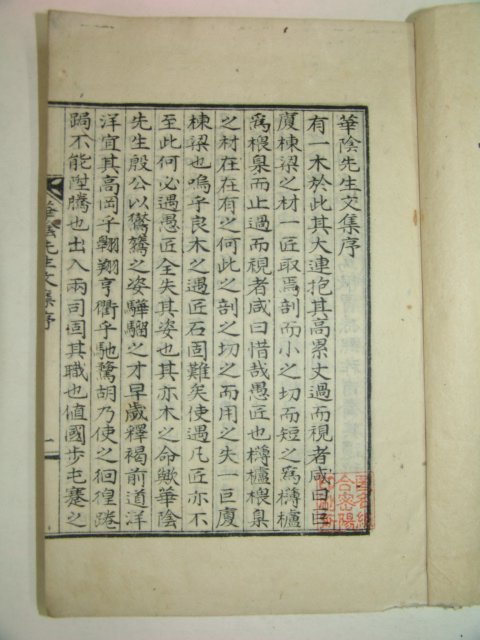 華陰先生文集序
有一木於此其大連抱其高累丈過而視者咸曰巨
廈棟梁之材一匠取焉剖而小之切而短之爲欂櫨
爲椳臬而止過而視者咸曰惜哉愚匠也欂櫨椳臬
之材在在有之何此之剖之切之而用之失一巨廈
棟梁也嗚乎良木之遇匠石固難矣使遇凡匠亦不
至此何必遇愚匠全失其姿也其亦木之命歟華陰
先生殷公以鸑鷟之姿驊騮之才早歲釋褐前道洋
洋宜其高岡乎翱翔亨衢乎馳騖胡乃使之徊徨蹉
跼不能陞騰也出入兩司固其職也値國步屯蹇之
華陰先生文集序
一